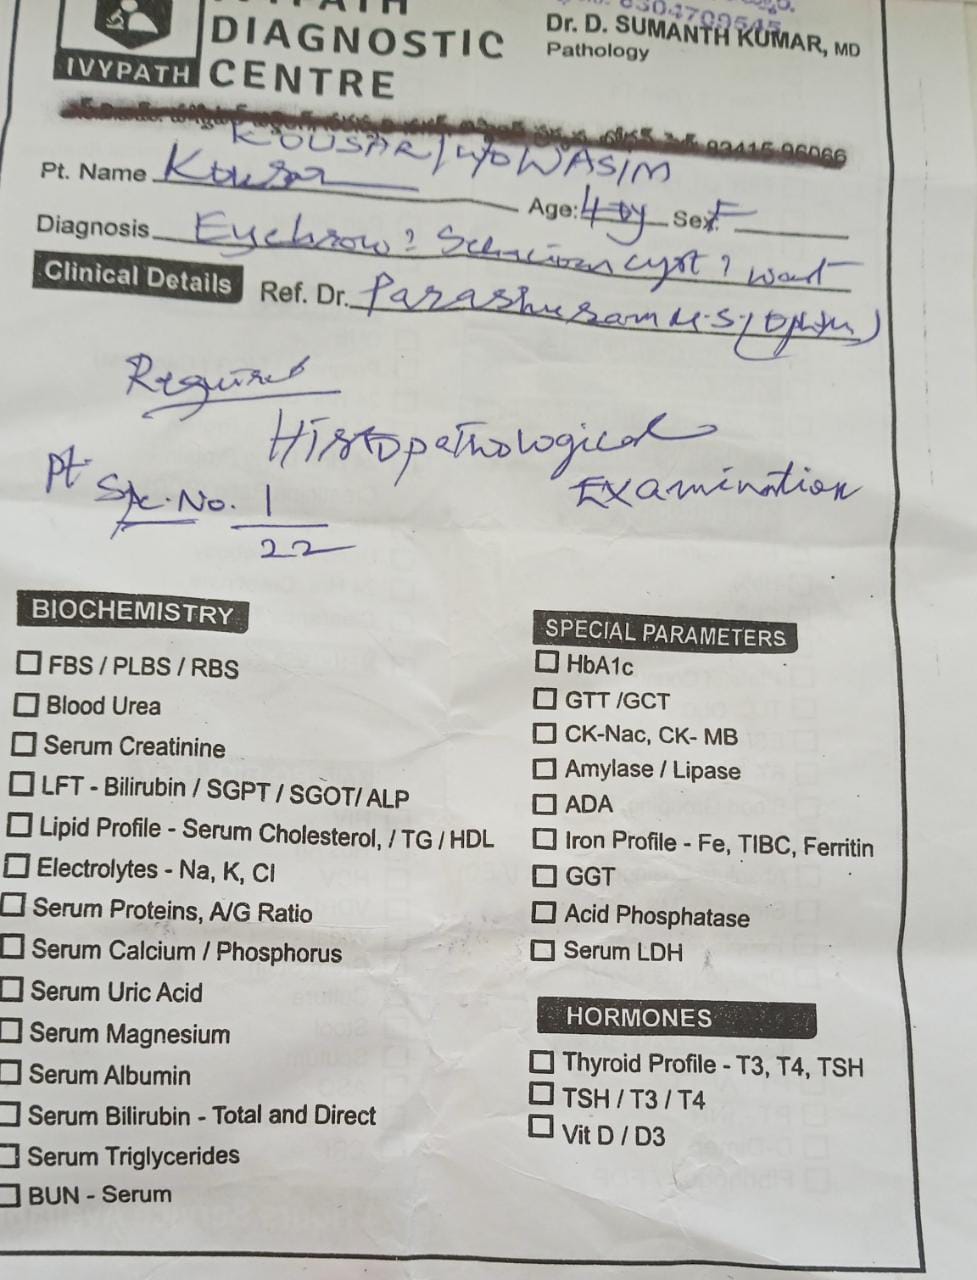 DIAGNOSTIC
CENTRE
IVYPATH
8304709545
Dr. D. SUMANTH KUMAR, MD
Pathology
93415 96066
KOUSAR / W/O WASIM
Pt. Name Kousar
Age: 40y Sex F
Diagnosis Eyebrow? Sebaceous cyst? wart
Clinical Details
Ref. Dr. Parashuram M.S. (Ophth)
Required
Histopathological
Examination
Pt
No. 1
22
BIOCHEMISTRY
FBS / PLBS / RBS
Blood Urea
Serum Creatinine
LFT - Bilirubin / SGPT / SGOT/ ALP
Lipid Profile - Serum Cholesterol, / TG / HDL
Electrolytes - Na, K, Cl
Serum Proteins, A/G Ratio
Serum Calcium / Phosphorus
Serum Uric Acid
Serum Magnesium
Serum Albumin
Serum Bilirubin - Total and Direct
Serum Triglycerides
BUN - Serum
SPECIAL PARAMETERS
HbA1c
GTT /GCT
CK-Nac, CK- MB
Amylase / Lipase
ADA
Iron Profile - Fe, TIBC, Ferritin
GGT
Acid Phosphatase
Serum LDH
HORMONES
Thyroid Profile - T3, T4, TSH
TSH / T3 / T4
Vit D / D3